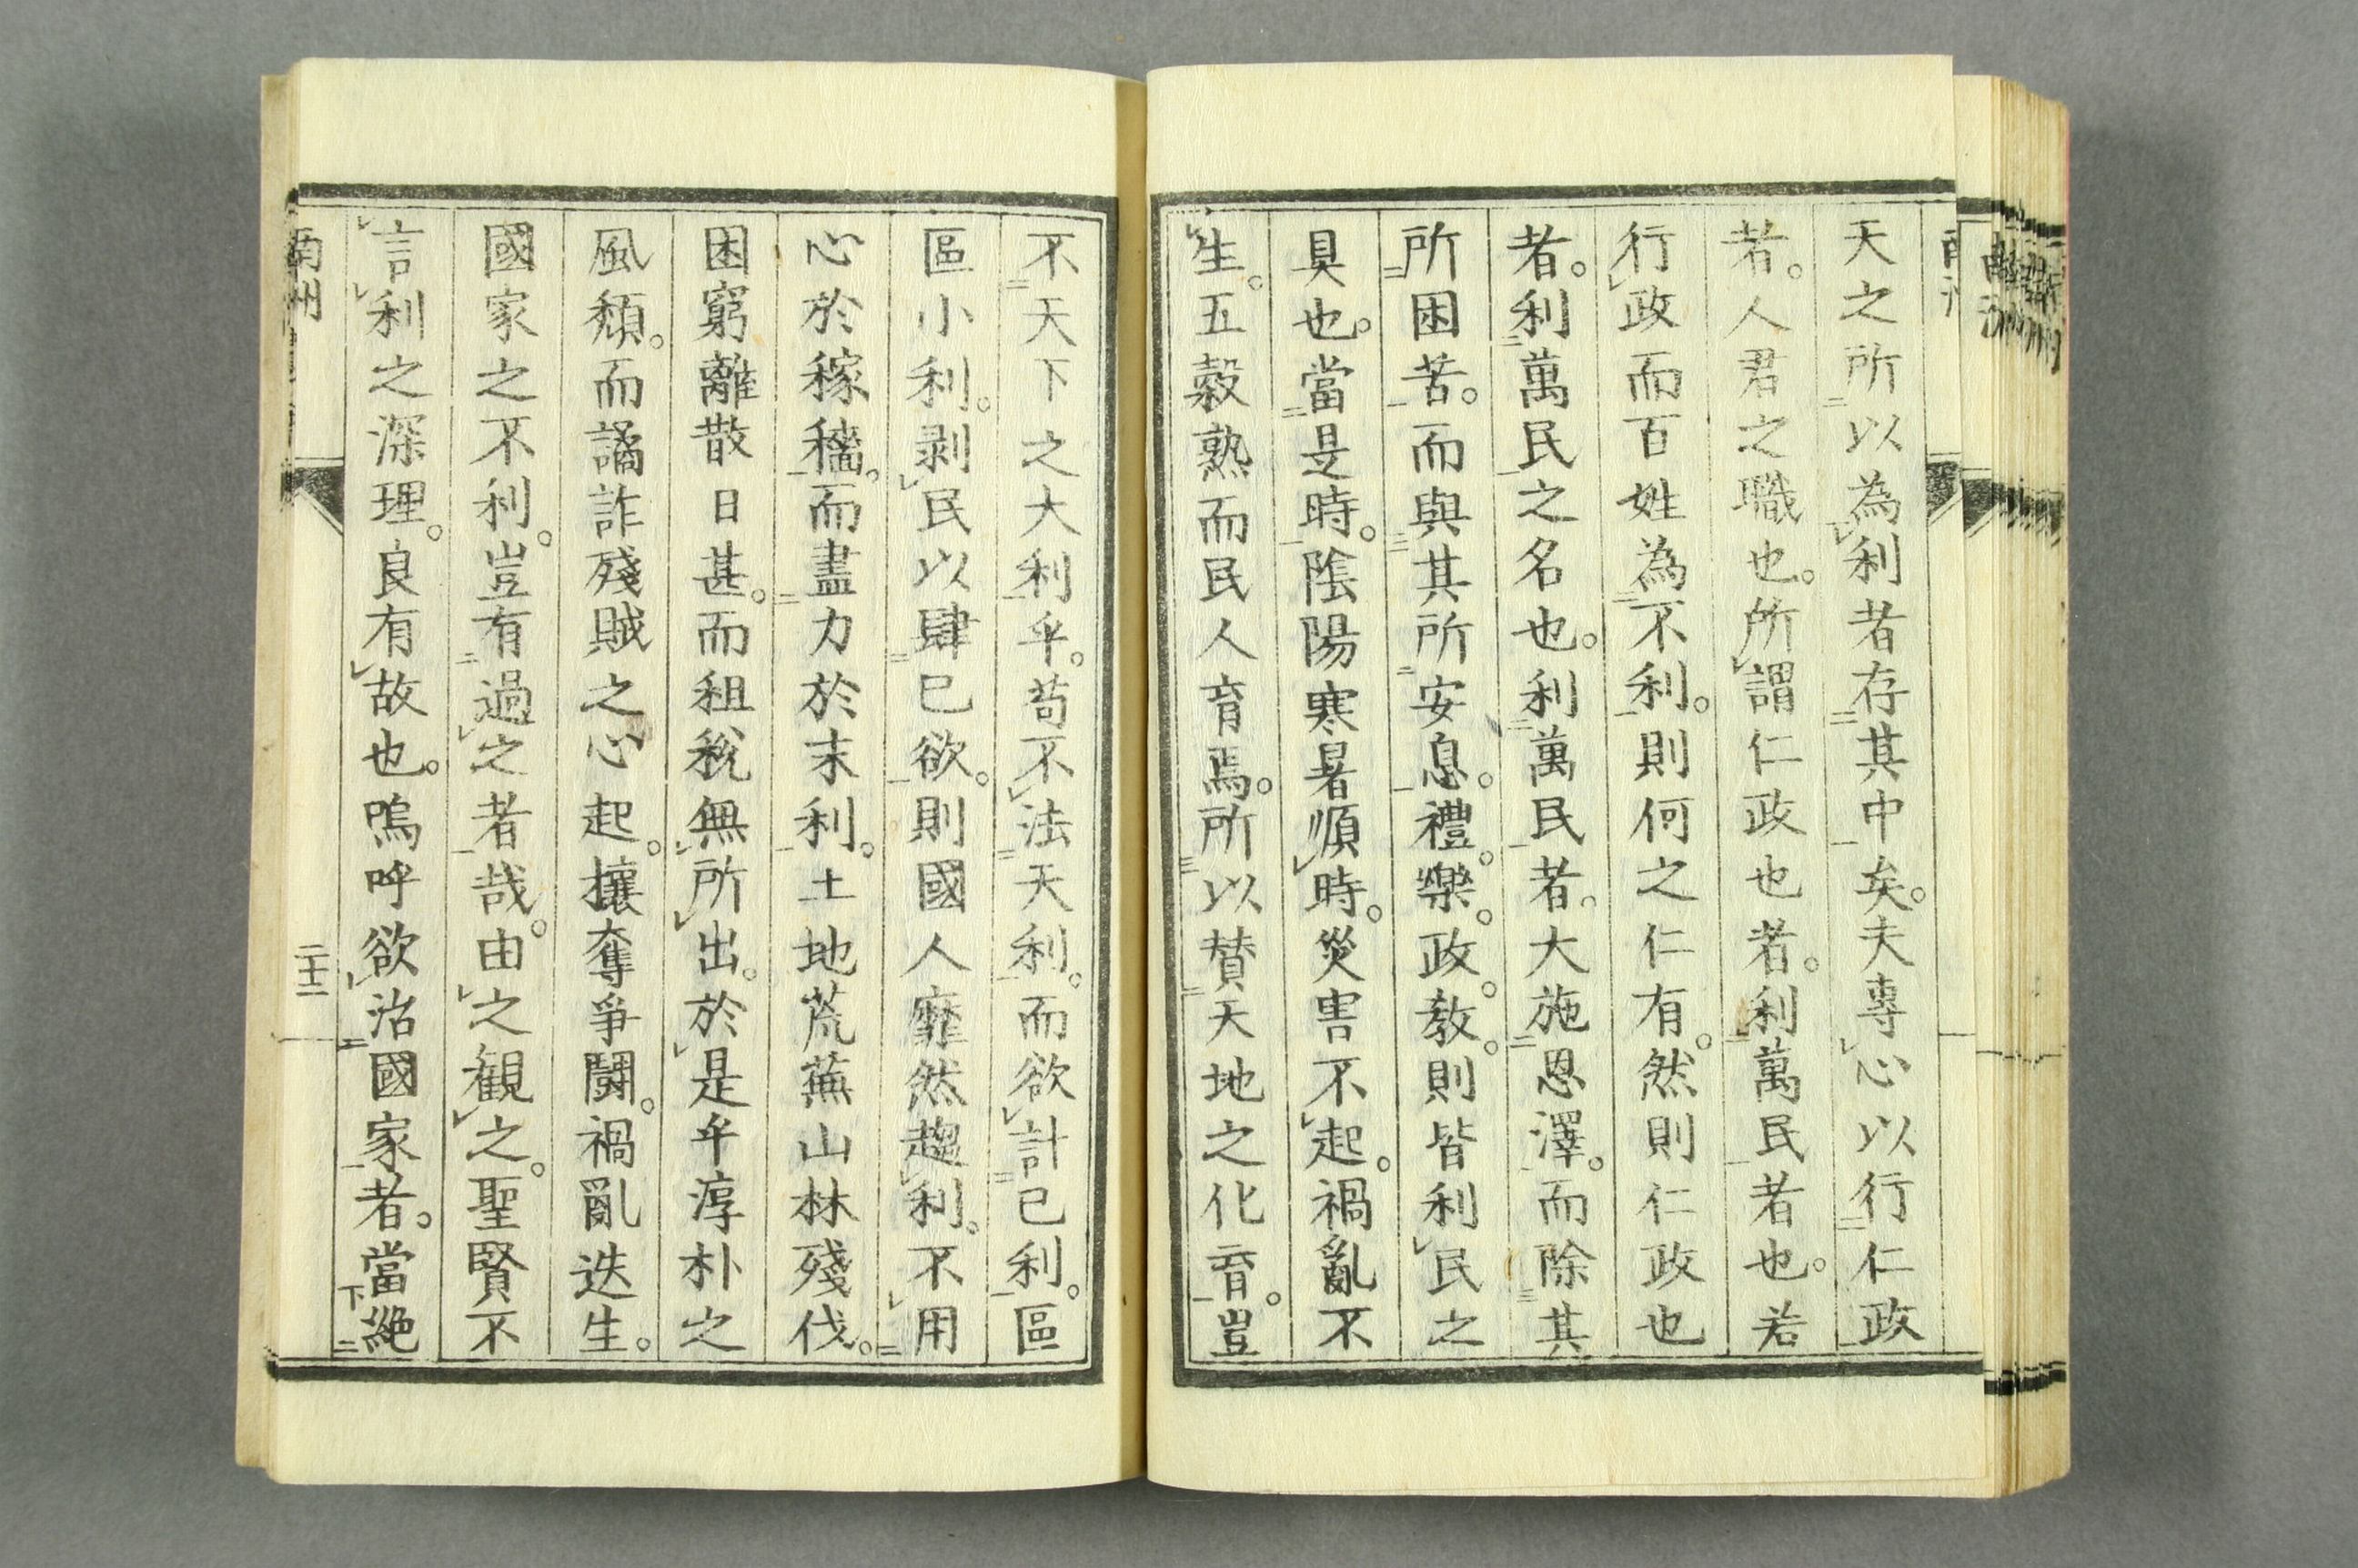 天之所以為利者存其中矣。夫專心以行仁政
者。人君之職也。所謂仁政也者。利萬民者也。若
行政而百姓為不利。則何之仁有。然則仁政也
者。利萬民之名也。利萬民者。大施恩澤。而除其
所困苦。而與其所安息。禮。樂。政。教。則皆利民之
具也。當是時。陰陽寒暑順時。災害不起。禍亂不
生。五穀熟而民人育焉。所以贊天地之化育。豈
不天下之大利乎。苟不法天利。而欲計己利。區
區小利。剥民以肆己欲。則國人靡然趨利。不用
心於稼穡。而盡力於末利。土地荒蕪山林殘伐。
困窮離散日甚。而租稅無所出。於是乎淳朴之
風頽。而譎詐殘賊之心起。攘奪爭鬪。禍亂迭生。
國家之不利。豈有過之者哉。由之觀之。聖賢不
言利之深理。良有故也。嗚呼欲治國家者。當絶
南州
二十二